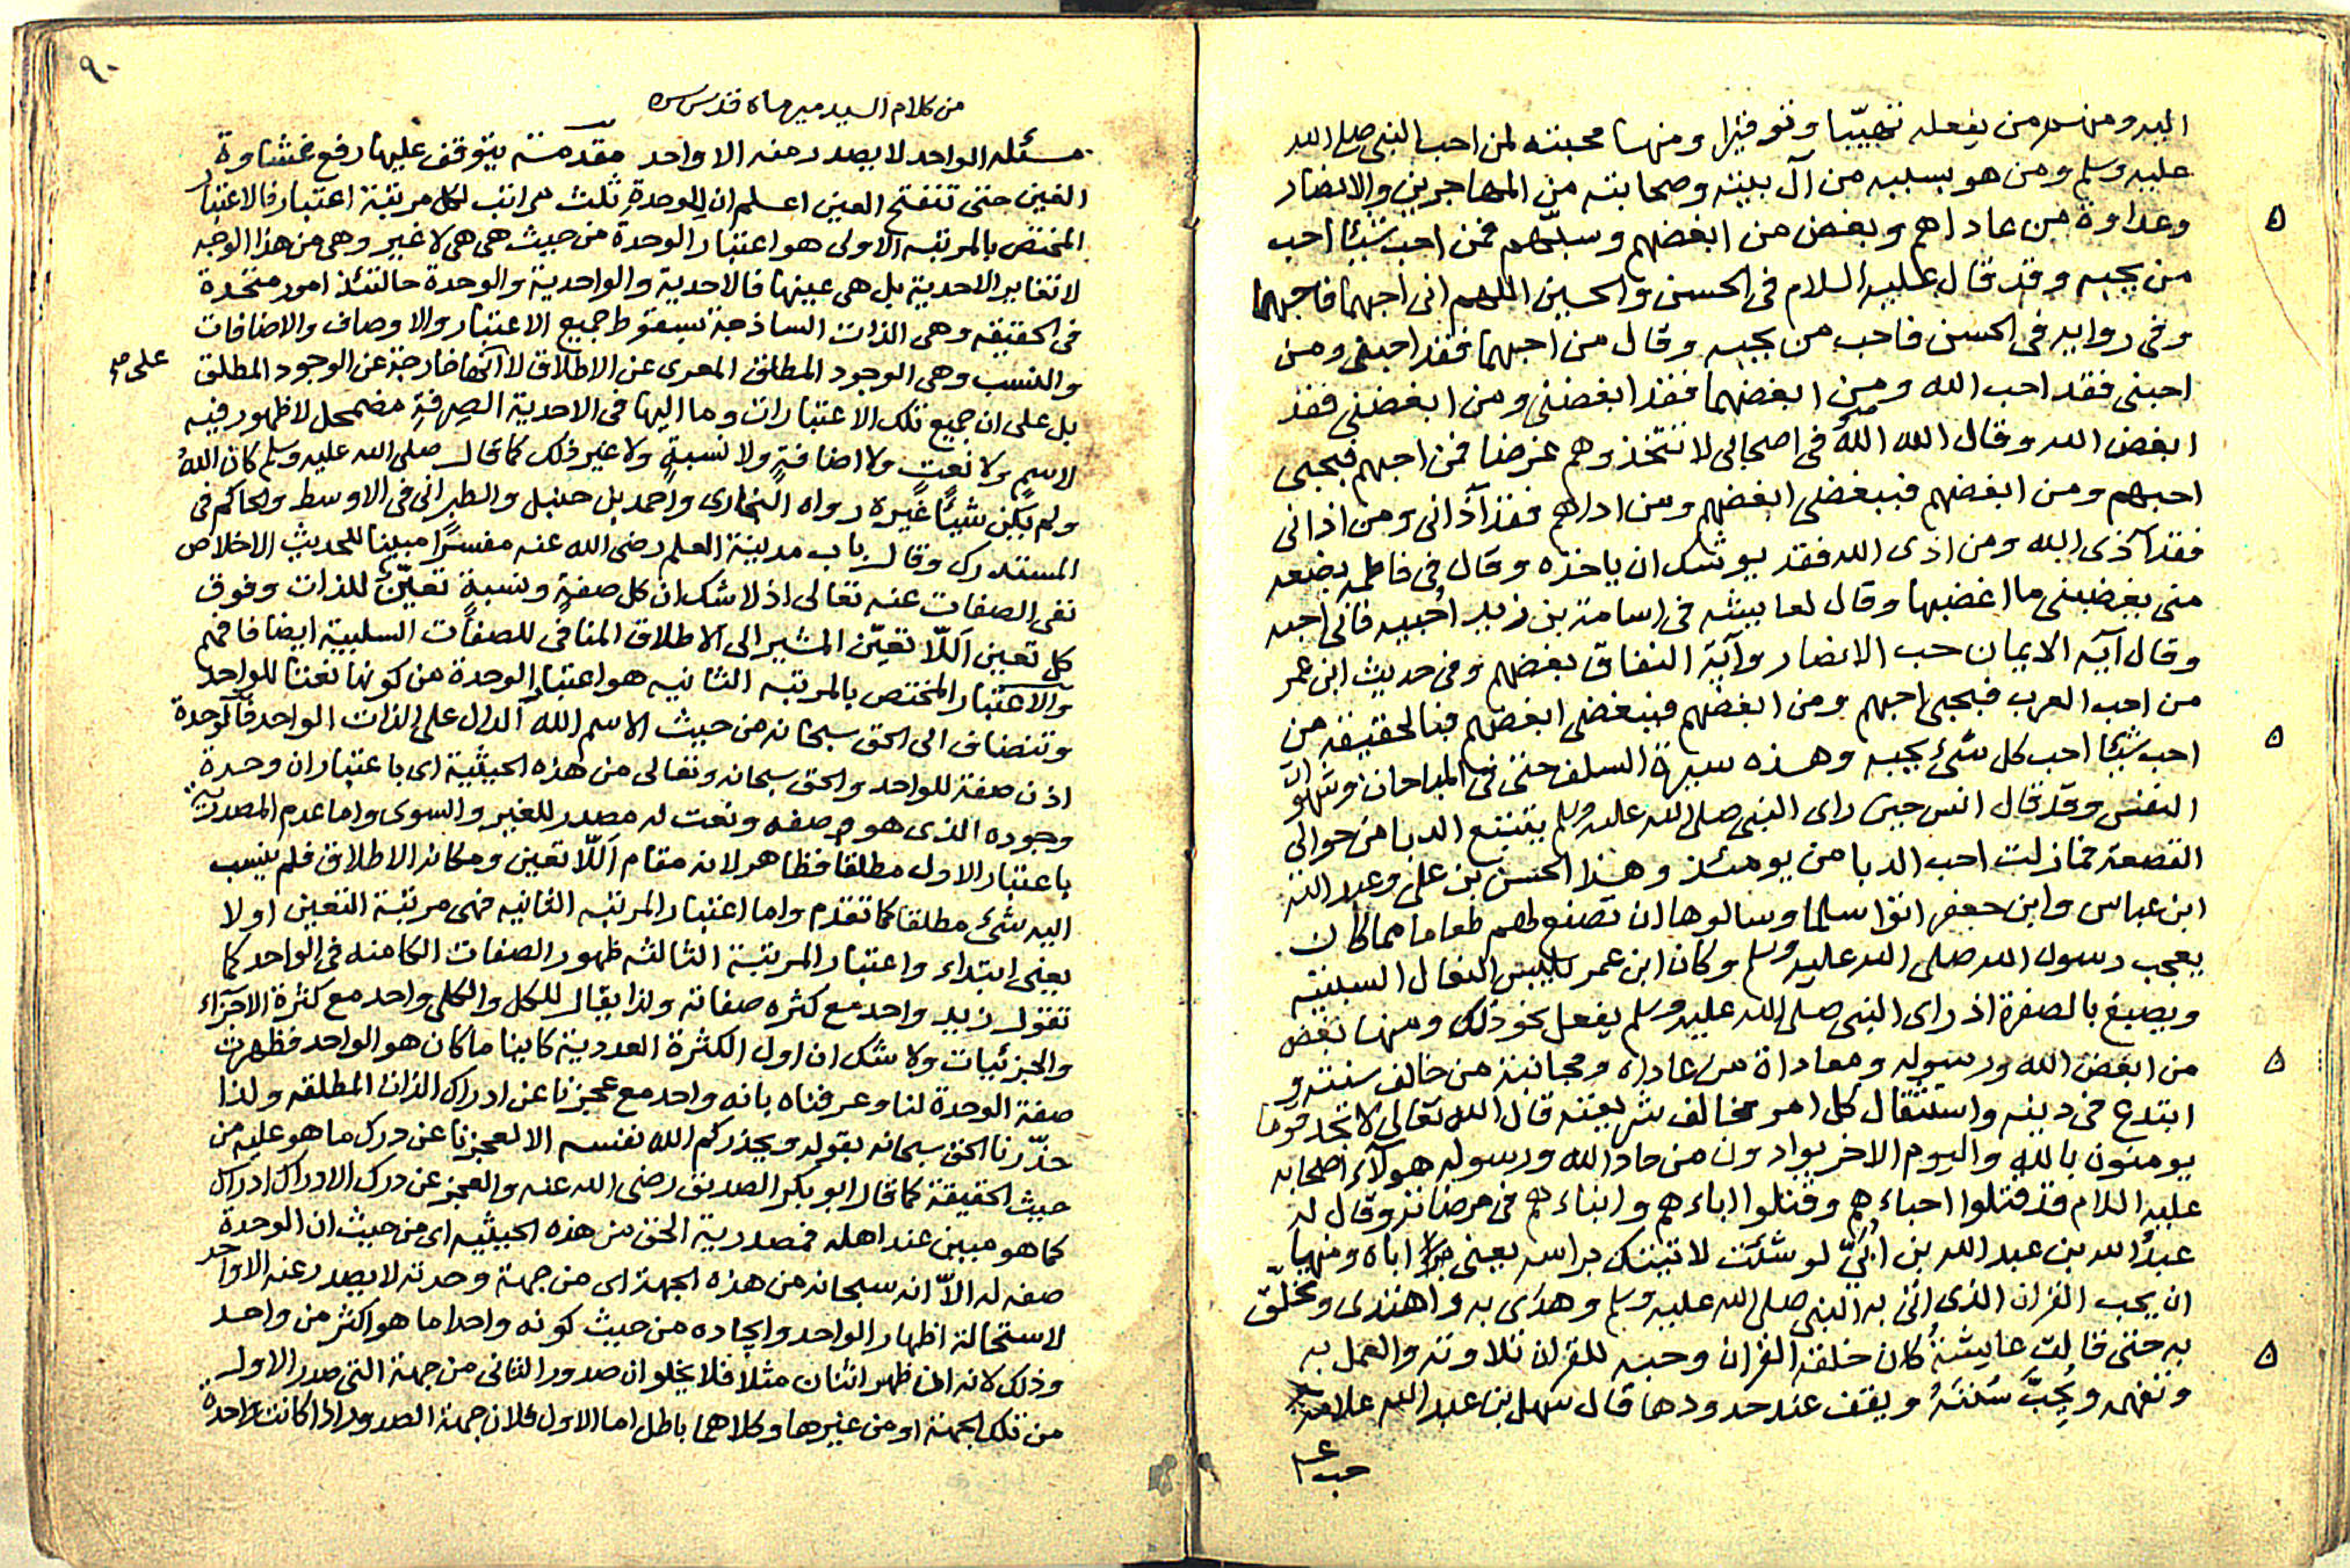 اليه ومنهم من يفعله تهيّبا وتوقيرا ومنها محبته لمن احب النبي صلى الله
عليه وسلم ومن هو بسببه من آل بيته وصحابته من المهاجرين والانصار
وعداوة من عاداهم وبغض من ابغضهم وسبّهم فمن احب شيئا احب
من يحبه وقد قال عليه السلام فى الحسن والحسين اللهم انى احبهما فاحبهما
وفى رواية فى الحسن فاحب من يحبه وقال من احبهما فقد احبنى ومن
احبنى فقد احب الله ومن ابغضهما فقد ابغضنى ومن ابغضنى فقد
ابغض الله وقال الله اللهَ فى اصحابى لا تتخذوهم غرضا فمن احبهم فبحبى
احبهم ومن ابغضهم فببغضى ابغضهم ومن اذاهم فقد آذانى ومن اذانى
فقد آذى الله ومن اذى الله فقد يوشك ان ياخذه وقال فى فاطمه بضعه
منى يغضبنى ما اغضبها وقال لعايشه فى اسامة بن زيد احبيه فانى احبه
وقال آية الايمان حب الانصار وآية النفاق بغضهم وفى حديث ابن عمر
من احب العرب فبحبى احبهم ومن ابغضهم فببغضى ابغضهم فبالحقيقة من
احب شيئا احب كل شئ يحبه وهذه سيرة السلف حتى فى المباحات وشهوات
النفس وقد قال انس حين راى النبى صلى الله عليه وسلم يتتبع الدبا من حوالى
القصعة فما زلت احب الدبا من يومئذ وهذا الحسن بن على وعبد الله
ابن عباس وابن جعفر اتوا سلما وسالوها ان تصنع لهم طعاما مما كان
يعجب رسول الله صلى الله عليه وسلم وكان ابن عمر يلبس النعال السبتيه
ويصبغ بالصفرة اذ راى النبى صلى الله عليه وسلم يفعل نحو ذلك ومنها بغض
من ابغض الله ورسوله ومعاداة من عاداه ومجانبة من خالف سنته و
ابتدع فى دينه واستثقال كل امر يخالف شريعته قال الله تعالى لا تجد قوما
يومنون بالله واليوم الاخر يوادون من حاد الله ورسوله هولآء اصحابه
عليه السلام قد قتلوا احباءهم وقتلوا اباءهم وابناءهم فى مرضاته وقال له
عبدُ الله بن عبد الله بن أُبَىّ لو شئت لاتيتك براسه يعنى اباه ومنها
ان يحب القران الذى اتى به النبى صلى الله عليه وسلم وهدى به واهتدى وتخلّق
به حتى قالت عايشةُ كان خلقه القران وحبه للقران تلاوته والعمل به
وتفهمه ويُحِبَّ سُنّتَهُ ويقف عند حدودها قال سهل بن عبد الله علامة
حب
٩٠
من كلام السيد ميرماه قدس سره
مسئله الواحد لا يصدر منه الا واحد مقدمة يتوقف عليها رفع غشاوة
الغين حتى تنفتح العين اعلم ان للوحدة ثلث مراتب لكل مرتبة اعتبار فالاعتبار
المختص بالمرتبه الاولى هو اعتبار الوحدة من حيث هى هى لا غير وهى من هذا الوجه
لا تغاير الاحدية بل هى عينها فالاحدية والواحدية والوحدة حالتئذ امور متحدة
فى الحقيقه وهى الذات الساذجة بسقوط جميع الاعتبار والاوصاف والاضافات
والنسب وهى الوجود المطلق المعرى عن الاطلاق لا انها خارجة عن الوجود المطلق
على
بل على ان جميع تلك الاعتبارات وما اليها فى الاحدية الصرفةِ مضمحل لا ظهور فيه
لاسم ولا نعتٍ ولا اضافةٍ ولا نسبةٍ ولا غير ذلك كما قال صلى الله عليه وسلم كان اللهُ
ولم يكن شيئاً غيره رواه البخارى واحمد بل حنبل والطبرانى فى الاوسط والحاكم فى
المستدرك وقال باب مدينة العلم رضى الله عنه مفسرًا مبينا للحديث الاخلاص
نفى الصفات عنه تعالى اذ لا شك ان كل صفةٍ ونسبةٍ تعيّنٌ للذات وفوق
كل تعين اَللّا تعيّن المشير الى الاطلاق المنافى للصفات السلبية ايضا فافهم
والاعتبار المختص بالمرتبه الثانيه هو اعتبار الوحدة من كونها نعتا للواحد
وتنضاف الى الحق سبحانه من حيث الاسم الله الدال على الذات الواحد فالوحدة
اذن صفة للواحد والحق سبحانه وتعالى من هذه الحيثية اى باعتبار ان وحدة
وجوده الذى هو وصفه ونعت له مصدر للغير والسوى واما عدم المصدرية
باعتبار الاول مطلقا فظاهر لانه مقام اَللّا تعين ومكانه الاطلاق فلم ينسب
اليه شئ مطلقا كما تقدم واما اعتبار المرتبه الثانيه فهى مرتبة التعين اولا
يعنى ابتداء واعتبار المرتبة الثالثه ظهور الصفات الكامنه فى الواحد كما
تقول زيد واحد مع كثره صفاته ولذا يقال للكل والكلى واحد مع كثرة الاجزاء
والجزئيات ولا شك ان اول الكثرة العددية كاينا ما كان هو الواحد فظهرت
صفة الوحدة لنا وعرفناه بانه واحد مع عجزنا عن ادراك الذات المطلقه ولذا
حذّرنا الحق سبحانه بقوله ويحذركم الله نفسه الا لعجزنا عن درك ما هو عليه من
حيث الحقيقة كما قال ابو بكر الصديق رضى الله عنه والعجز عن درك الادراك ادراك
كما هو مبين عند اهله فمصدرية الحق من هذه الحيثيه اى من حيث ان الوحدة
صفه له الاّ انه سبحانه من هذه الجهة اى من جهة وحدته لا يصدر عنه الا واحد
لاستحالة اظهار الواحد وايجاده من حيث كونه واحدا ما هو اكثر من واحد
وذلك لانه ان ظهر اثنان مثلا فلا يخلو ان صدور الثانى من جهة التى صدر الاول
من تلك الجهة او من غيرها وكلاهما باطل اما الاول فلان جهة الصدور اذا كانت واحدة